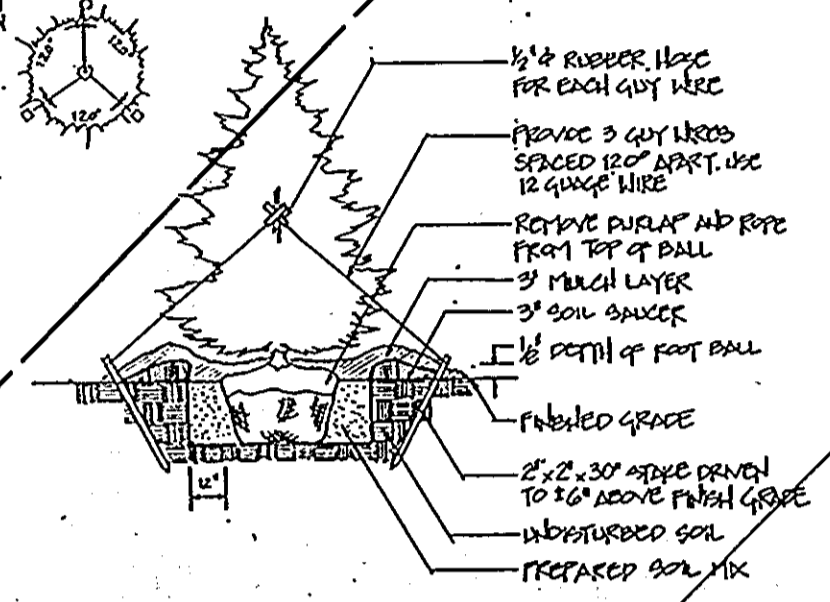 120°
120°
120°
1/2" ⌀ RUBBER HOSE
FOR EACH GUY WIRE
PROVIDE 3 GUY WIRES
SPACED 120° APART. USE
12 GUAGE WIRE
REMOVE BURLAP AND ROPE
FROM TOP OF BALL
3" MULCH LAYER
3" SOIL SAUCER
DEPTH OF ROOT BALL
FINISHED GRADE
2"x2"x30" STAKE DRIVEN
TO ±6" ABOVE FINISH GRADE
UNDISTURBED SOIL
PREPARED SOIL MIX
12"